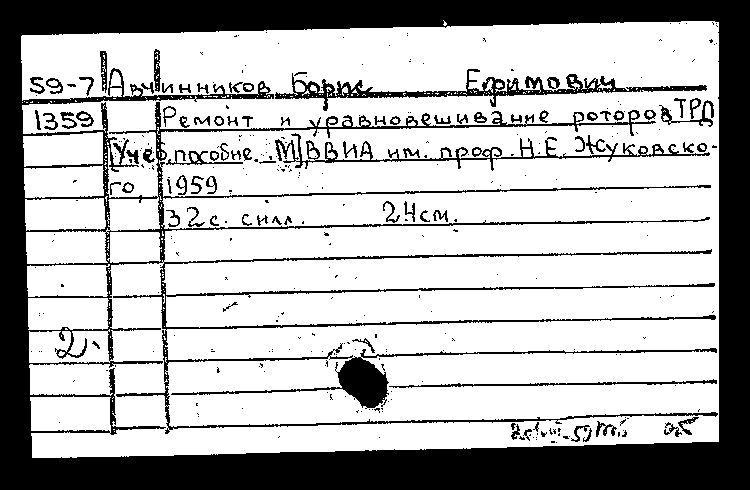 59-7 Авчинников Борис Ефимович
1359 Ремонт и уравновешивание роторов ТРД
[Учеб. пособие. М] ВВИА им. проф. Н.Е. Жуковско-
го, 1959.
32 с. с илл. 24 см.
2.